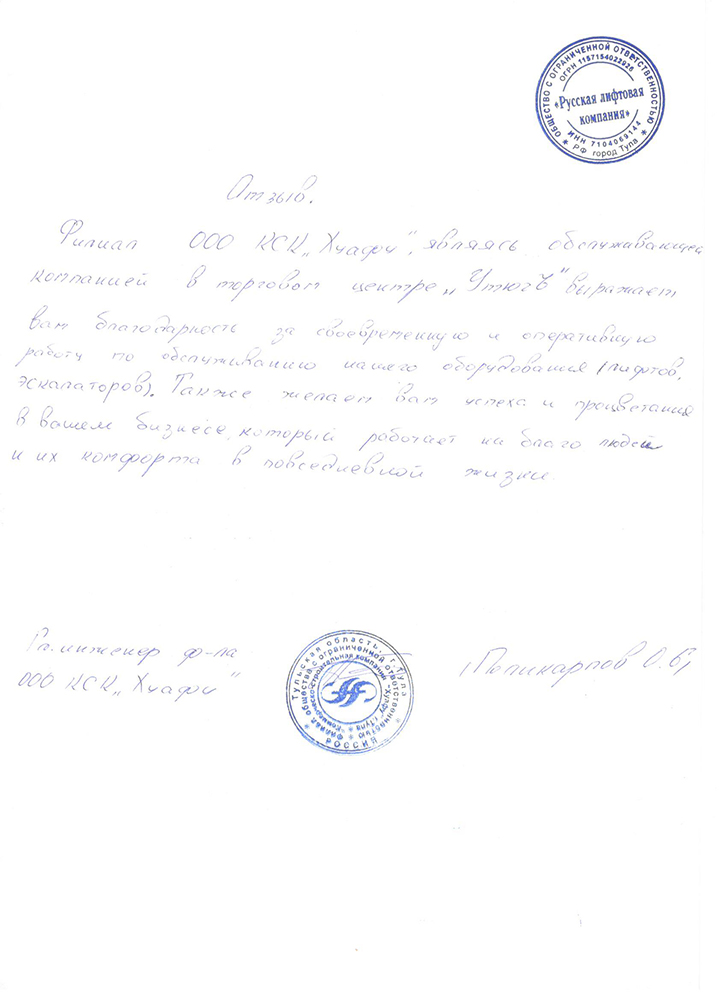 ОБЩЕСТВО С ОГРАНИЧЕННОЙ ОТВЕТСТВЕННОСТЬЮ
ОГРН 1157154022926
«Русская лифтовая
компания»
ИНН 7104069144
РФ город Тула
Отзыв.
Филиал ООО КСК „Хуафу", являясь обслуживающей
компанией в торговом центре „УтюгЪ" выражает
вам благодарность за своевременную и оперативную
работу по обслуживанию нашего оборудования (лифтов,
эскалаторов). Также желаем вам успеха и процветания
в вашем бизнесе, который работает на благо людей
и их комфорта в повседневной жизни.
Гл. инженер ф-ла
ООО КСК „Хуафу"
(Поликарпов О.Б)
Тульская область, г. Тула
Филиал общества с ограниченной ответственностью
"Коммерческо-строительная компания "Хуафу" г. Тула
РОССИЯ